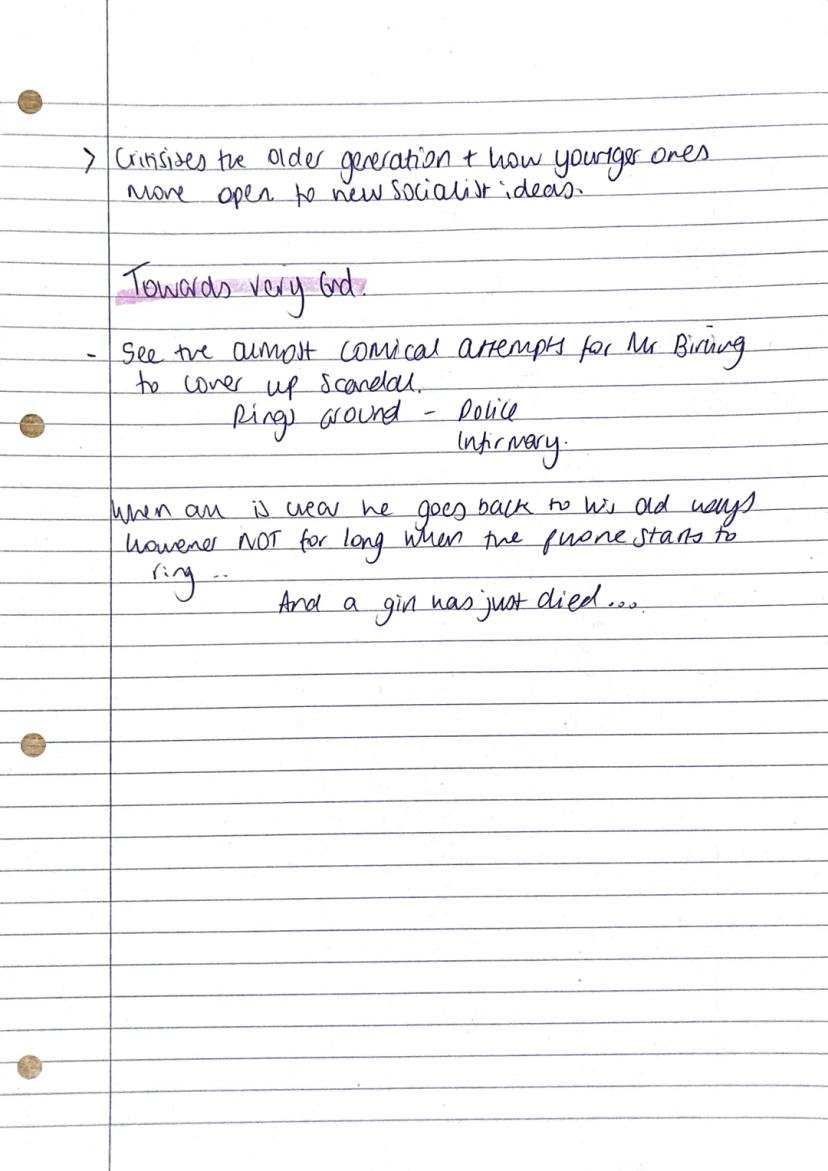 > Critisises the older generation + how younger ones
more open to new socialist ideas.
Towards very End.
- See the almost comical attempts for Mr Birling
to cover up scandal.
Rings around - Police
Infirmary.
When all is clear he goes back to his old ways
however NOT for long when the phone starts to
ring ..
And a girl has just died ...